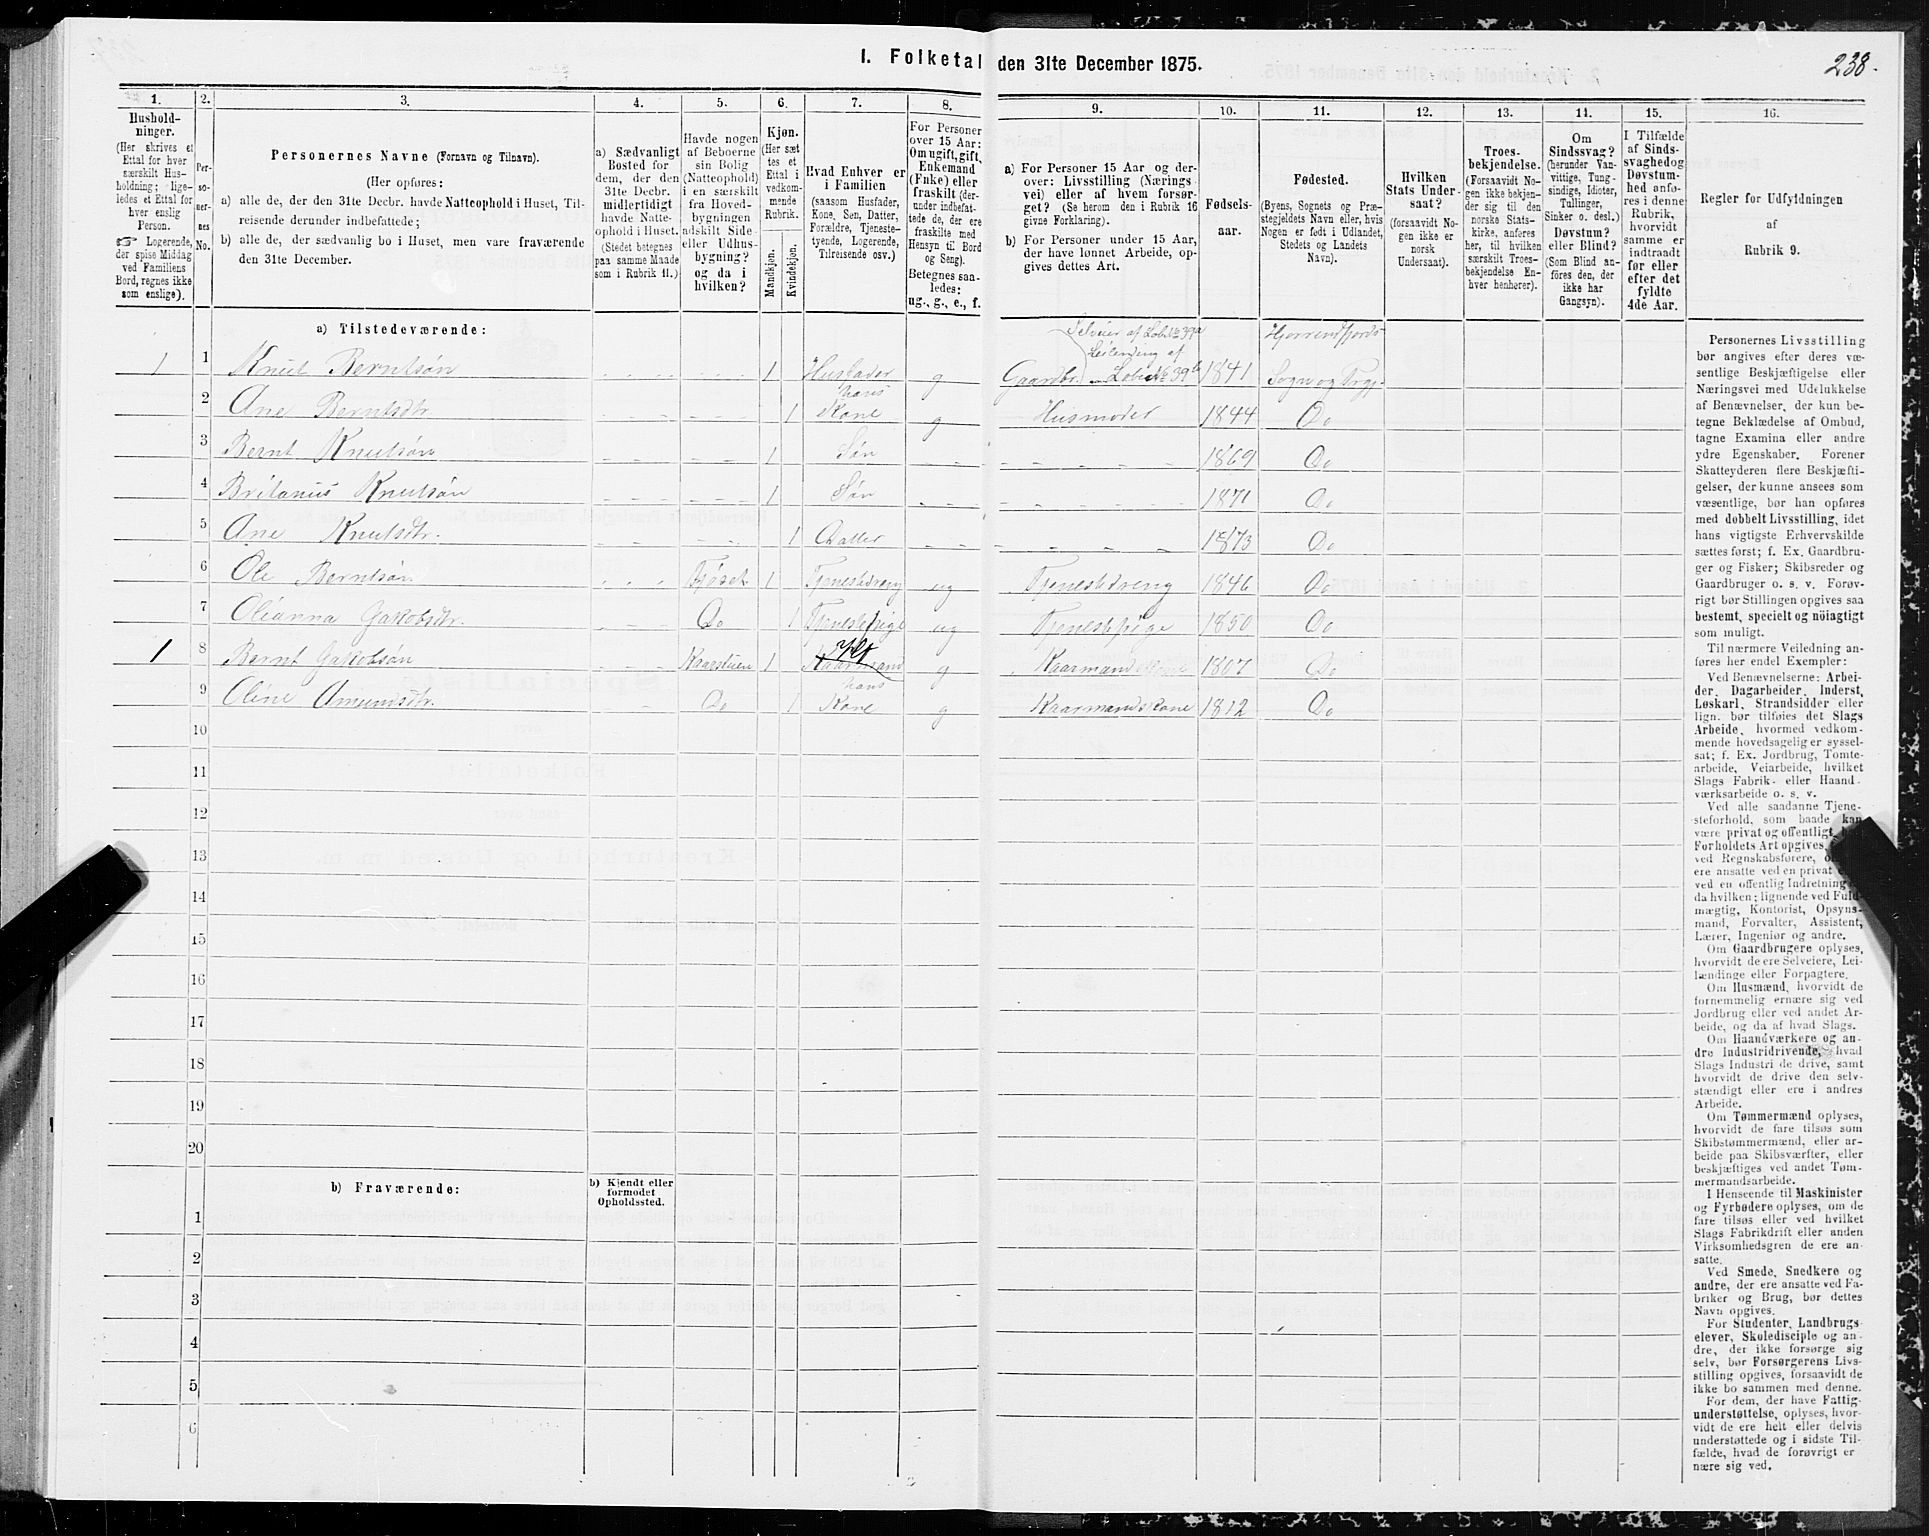 238.
I. Folketal den 31te December 1875.
1.
Hushold-
ninger.
(Her skrives et
Ettal for hver
særskilt Hus-
holdning; lige-
ledes et Ettal for
hver enslig
Person.
☞ Logerende,
der spise Middag
ved Familiens
Bord, regnes ikke
som enslige).
2.
Per-
so-
ner-
nes
No.
3.
Personernes Navne (Fornavn og Tilnavn).
(Her opføres:
a) alle de, der den 31te Decbr. havde Natteophold i Huset, Til-
reisende derunder indbefattede;
b) alle de, der sædvanlig bo i Huset, men vare fraværende
den 31te December.
4.
a) Sædvanligt
Bosted for
dem, der den
31te Decbr.
midlertidigt
havde Natte-
ophold i Huset.
(Stedet betegnes
paa samme Maade
som i Rubrik 11.)
5.
Havde nogen
af Beboerne
sin Bolig
(Natteophold)
i en særskilt
fra Hoved-
bygningen
adskilt Side-
eller Udhus-
bygning?
og da i
hvilken?
6.
Kjøn.
(Her sæt
tes et
Ettal i
vedkom-
mende
Rubrik.
Mandkjøn.
Kvindekjøn.
7.
Hvad Enhver er
i Familien
(saasom Husfader,
Kone, Søn, Datter,
Forældre, Tjeneste-
tyende, Logerende,
Tilreisende osv.)
8.
For Personer
over 15 Aar:
Om ugift, gift,
Enkemand
(Enke) eller
fraskilt (der-
under indbefat-
tede de, der ere
fraskilte med
Hensyn til Bord
og Seng).
Betegnes saa-
ledes:
ug., g., e., f.
9.
a) For Personer 15 Aar og der-
over: Livsstilling (Nærings-
vei) eller af hvem forsør-
get? (Se herom den i Rubrik 16
givne Forklaring).
b) For Personer under 15 Aar,
der have lønnet Arbeide, op-
gives dettes Art.
10.
Fødsels-
aar.
11.
Fødested.
(Byens, Sognets og Præ-
stegjeldets Navn eller, hvis
Nogen er født i Udlandet,
Stedets og Landets
Navn).
12.
Hvilken
Stats Under-
saat?
(forsaavidt No-
gen ikke er
norsk
Undersaat).
13.
Troes-
bekjendelse.
(Forsaavidt No-
gen ikke bekjen-
der sig til den
norske Stats-
kirke, anføres
her, til hvilken
særskilt Troes-
bekjendelse En-
hver henhører).
14.
Om
Sindssvag?
(herunder Van-
vittige, Tung-
sindige, Idioter,
Tullinger,
Sinker o. desl.)
Døvstum?
eller Blind?
(Som Blind an-
føres den, der
ikke har
Gangsyn).
15.
I Tilfælde
af Sinds-
svaghed og
Døvstum-
hed anfø-
res i denne
Rubrik,
hvorvidt
samme er
indtraadt
før eller
efter det
fyldte
4de Aar.
16.
Regler for Udfyldningen
af
Rubrik 9.
a) Tilstedeværende:
Selveier af Løb No 39a
Leilending af
Hjørrendfjords
1 1 Knut Berntsøn 1 Husfader g Gaardbr. Løbe No 39b 1841 Sogn og Prgj.
2 Ane Berntsdtr. 1 hans Kone g Husmoder 1844 Do
3 Bernt Knutsøn 1 Søn 1869 Do
4 Britanus Knutsøn 1 Søn 1871 Do
5 Ane Knutsdtr. 1 Datter 1873 Do
6 Ole Berntsøn Fjøset 1 Tjenestedreng ug Tjenestedreng 1846 Do
7 Olianna Jakobsdtr. Do 1 Tjenestepige ug Tjenestepige 1850 Do
1 8 Bernt Jakobsøn Kaarstuen 1 Kaarmand g Kaarmand 1807 Do
9 Oline Amundsdtr. Do 1 hans Kone g Kaarmandskone 1812 Do
10
11
12
13
14
15
16
17
18
19
20
b) Fraværende:
b) Kjendt eller
formodet
Opholdssted.
1
2
3
4
5
6
Personernes Livsstilling
bør angives efter deres væ-
sentlige Beskjæftigelse eller
Næringsvei med Udelukkelse
af Benævnelser, der kun be-
tegne Beklædelse af Ombud,
tagne Examina eller andre
ydre Egenskaber. Forener
Skatteyderen flere Beskjæfti-
gelser, der kunne ansees som
væsentlige, bør han opføres
med dobbelt Livsstilling, idet
hans vigtigste Erhvervskilde
sættes først; f. Ex. Gaardbru-
ger og Fisker; Skibsreder og
Gaardbruger o. s. v. Forøv-
rigt bør Stillingen opgives saa
bestemt, specielt og nöiagtigt
som muligt.
Til nærmere Veiledning an-
føres her endel Exempler:
Ved Benævnelserne: Arbei-
der, Dagarbeider, Inderst,
Løskarl, Strandsidder eller
lign. bør tilføies det Slags
Arbeide, hvormed vedkom-
mende hovedsagelig er syssel-
sat; f. Ex. Jordbrug, Tomte-
arbeide, Veiarbeide, hvilket
Slags Fabrik- eller Haand-
værksarbeide o. s. v.
Ved alle saadanne Tjene-
steforhold, som baade kan
være privat og offentligt,
Forholdets Art opgives,
ved Regnskabsførere,
ere ansatte ved en privat
ved en offentlig Indretning
da hvilken; lignende ved Fuld-
mægtig, Kontorist, Opsyns-
mand, Forvalter, Assistent,
Lærer, Ingeniør og andre.
Om Gaardbrugere oplyses,
hvorvidt de ere Selveiere, Lei-
lændinge eller Forpagtere.
Om Husmænd, hvorvidt de
fornemmelig ernære sig ved
Jordbrug eller ved andet Ar-
beide, og da af hvad Slags.
Om Haandværkere og an-
dre Industridrivende, hvad
Slags Industri de drive, samt
hvorvidt de drive den selv-
stændigt eller ere i andres
Arbeide.
Om Tømmermænd oplyses,
hvorvidt de fare tilsøs som
Skibstømmermænd, eller ar-
beide paa Skibsværfter, eller
beskjæftiges ved andet Tøm-
mermandsarbeide.
I Henseende til Maskinister
og Fyrbødere oplyses, om de
fare tilsøs eller ved hvilket
Slags Fabrikdrift eller anden
Virksomhedsgren de ere an-
satte.
Ved Smede, Snedkere og
andre, der ere ansatte ved Fa-
briker og Brug, bør dettes
Navn opgives.
For Studenter, Landbrugs-
elever, Skoledisciple og an-
dre, der ikke forsørge sig
selv, bør Forsørgerens Livs-
stilling opgives, forsaavidt de
ikke bo sammen med denne.
For dem, der have Fattig-
understøttelse, oplyses, hvor-
vidt de ere helt eller delvis
understøttede og i sidste Til-
fælde, hvad de forøvrigt er
nære sig ved.